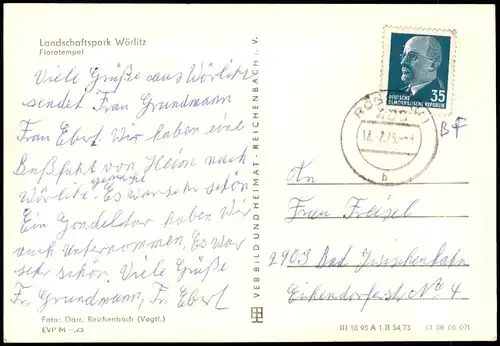 Landschaftspark Wörlitz
Floratempel
Viele Grüße aus Wörlitz
sendet Frau Grundmann
Frau Ebert. Wir haben eine
Bußfahrt von Heim nach
Wörlitz gemacht. Es war sehr schön
Ein Gondelstar haben Wir
auch Unternommen. Es war
sehr schön. Viele Grüße
Fr. Grundmann, Fr. Ebert
Foto: Darr, Reichenbach (Vogtl.)
EVP M -,25
VEB BILD UND HEIMAT · REICHENBACH i. V.
35
DEUTSCHE
DEMOKRATISCHE REPUBLIK
b
BF
An
Frau Freisel
2903 Bad Zwischenhahn
Eichendorferst. No 4
III 18 93 A 1. B 54,73
01 08 06 071